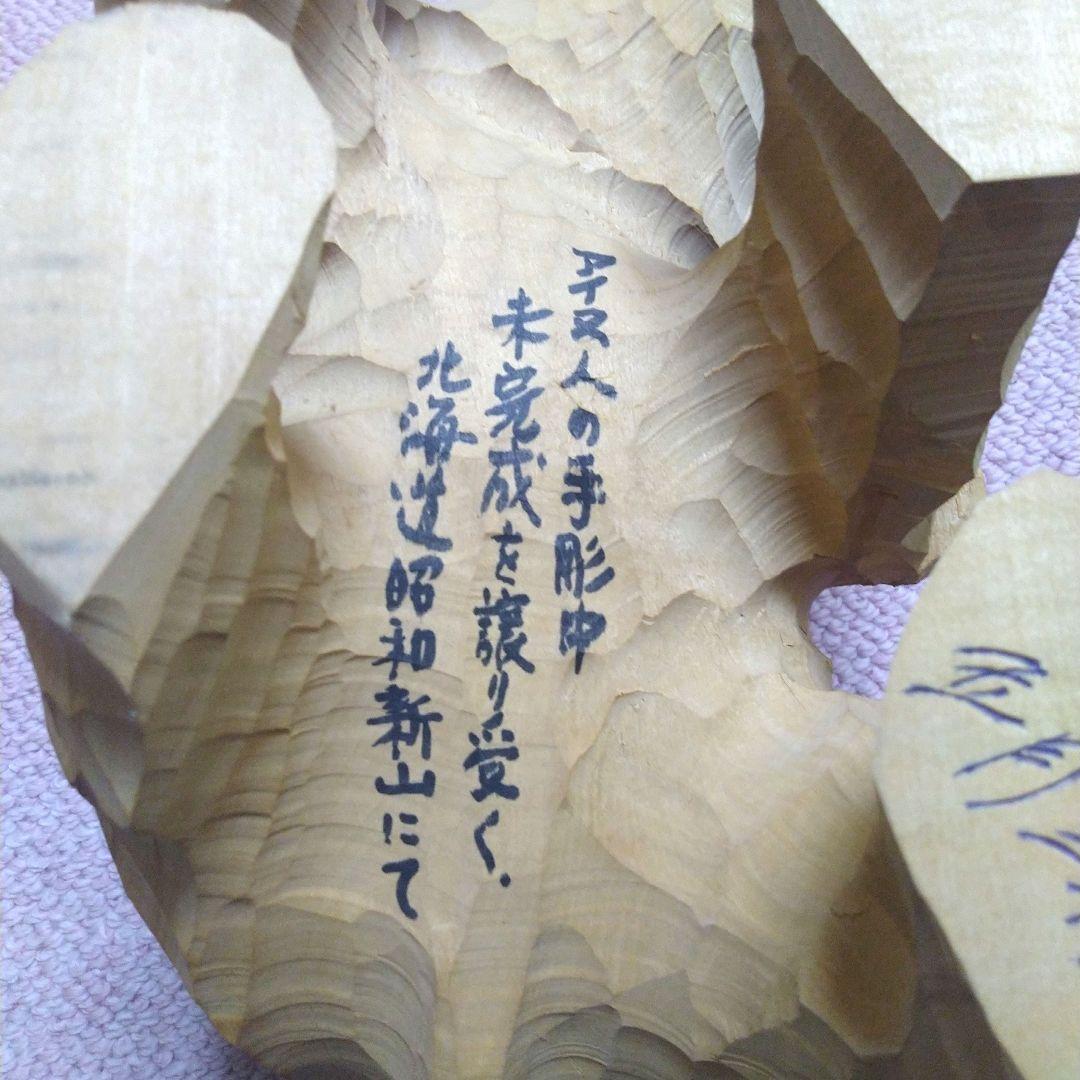 アイヌ人の手彫中
未完成を譲り受く.
北海道昭和新山にて